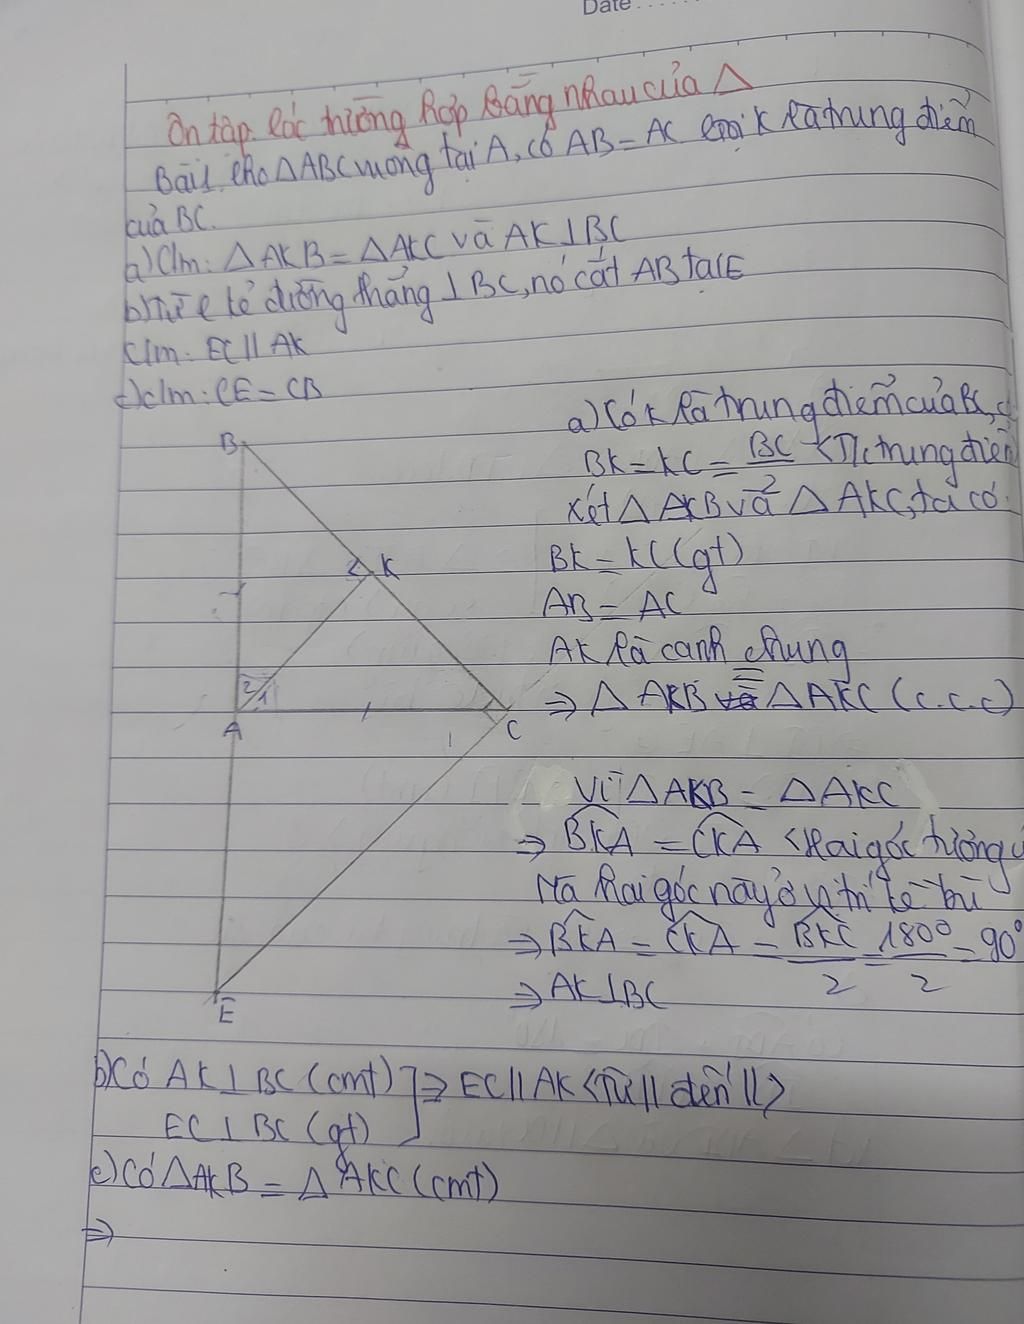 Date
Ôn tập các trường hợp bằng nhau của Δ
Bài 1. Cho ΔABC vuông tại A, có AB = AC Gọi K là trung điểm
của BC.
a) C/m: ΔAKB = ΔAKC và AK⊥BC
b) Từ C kẻ đường thẳng ⊥ BC, nó cắt AB tại E
C/m: EC // AK
c) c/m: CE = CB
B
K
2
1
A
C
1
E
a) Có K là trung điểm của BC, c
BK = KC = BC/2 <T/c trung điểm
Xét ΔAKB và ΔAKC, ta có:
BK = KC (gt)
AB = AC
AK là cạnh chung
⇒ ΔAKB = ΔAKC (c.c.c)
Vì ΔAKB = ΔAKC
⇒ BKA = CKA <Hai góc tương ứ
Mà hai góc này ở vị trí kề bù
⇒ BKA = CKA = BKC/2 = 180°/2 = 90°
⇒ AK⊥BC
b) Có AK⊥BC (cmt) ] ⇒ EC // AK <Từ ⊥ đến //>
EC⊥BC (gt)
c) Có ΔAKB = ΔAKC (cmt)
⇒